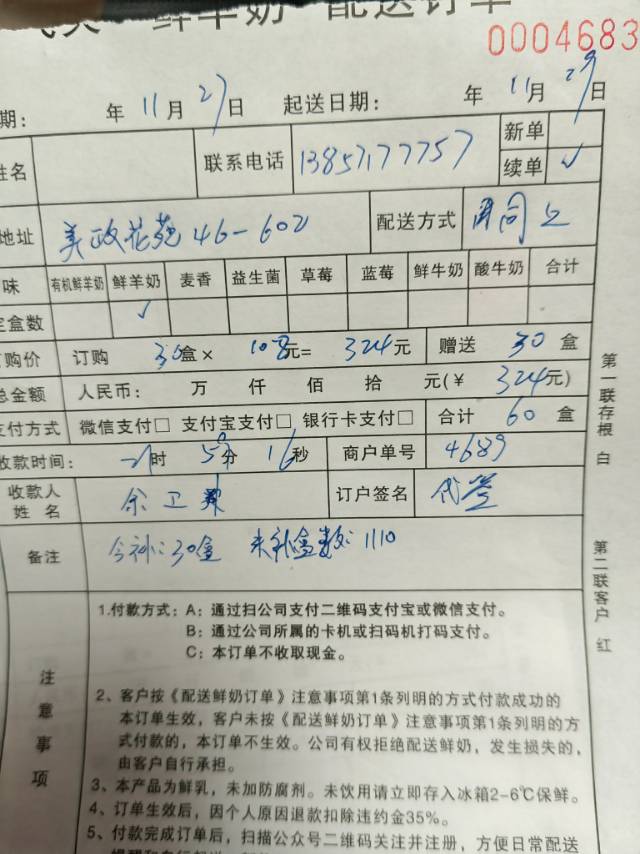 鲜羊奶 配送订单
0004683
期： 年 11 月 27 日 起送日期： 年 11 月 29 日
姓名 联系电话 13857177757 新单
续单 ✓
地址 美政花苑 46-602 配送方式 周同上
味 有机鲜羊奶 鲜羊奶 麦香 益生菌 草莓 蓝莓 鲜牛奶 酸牛奶 合计
定盒数 ✓
订购价 订购 30 盒× 10.8 元= 324 元 赠送 30 盒
总金额 人民币： 万 仟 佰 拾 元(￥ 324 元)
支付方式 微信支付□ 支付宝支付□ 银行卡支付□ 合计 60 盒
收款时间： 21 时 59 分 16 秒 商户单号 4689
收款人
姓 名 余卫 订户签名 代签
备注 今补：30盒 未补盒数：1110
第一联存根 白
第二联客户 红
注意事项
1.付款方式：A：通过扫公司支付二维码支付宝或微信支付。
B：通过公司所属的卡机或扫码机打码支付。
C：本订单不收取现金。
2、客户按《配送鲜奶订单》注意事项第1条列明的方式付款成功的
本订单生效，客户未按《配送鲜奶订单》注意事项第1条列明的方
式付款的，本订单不生效。公司有权拒绝配送鲜奶，发生损失的，
由客户自行承担。
3、本产品为鲜乳，未加防腐剂。未饮用请立即存入冰箱2-6℃保鲜。
4、订单生效后，因个人原因退款扣除违约金35%。
5、付款完成订单后，扫描公众号二维码关注并注册，方便日常配送